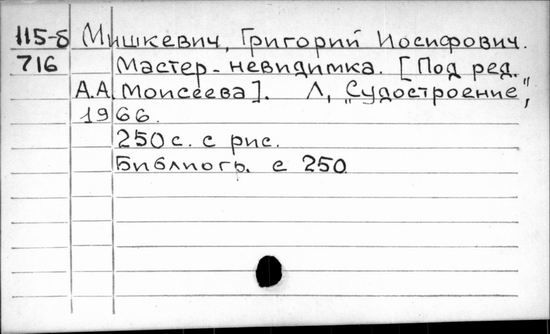 115-б Мишкевич, Григорий Иосифович.
716 Мастер-невидимка. [Под ред.
А.А. Моисеева]. Л, „Судостроение",
1966.
250 с. с рис.
Библиогр. с 250